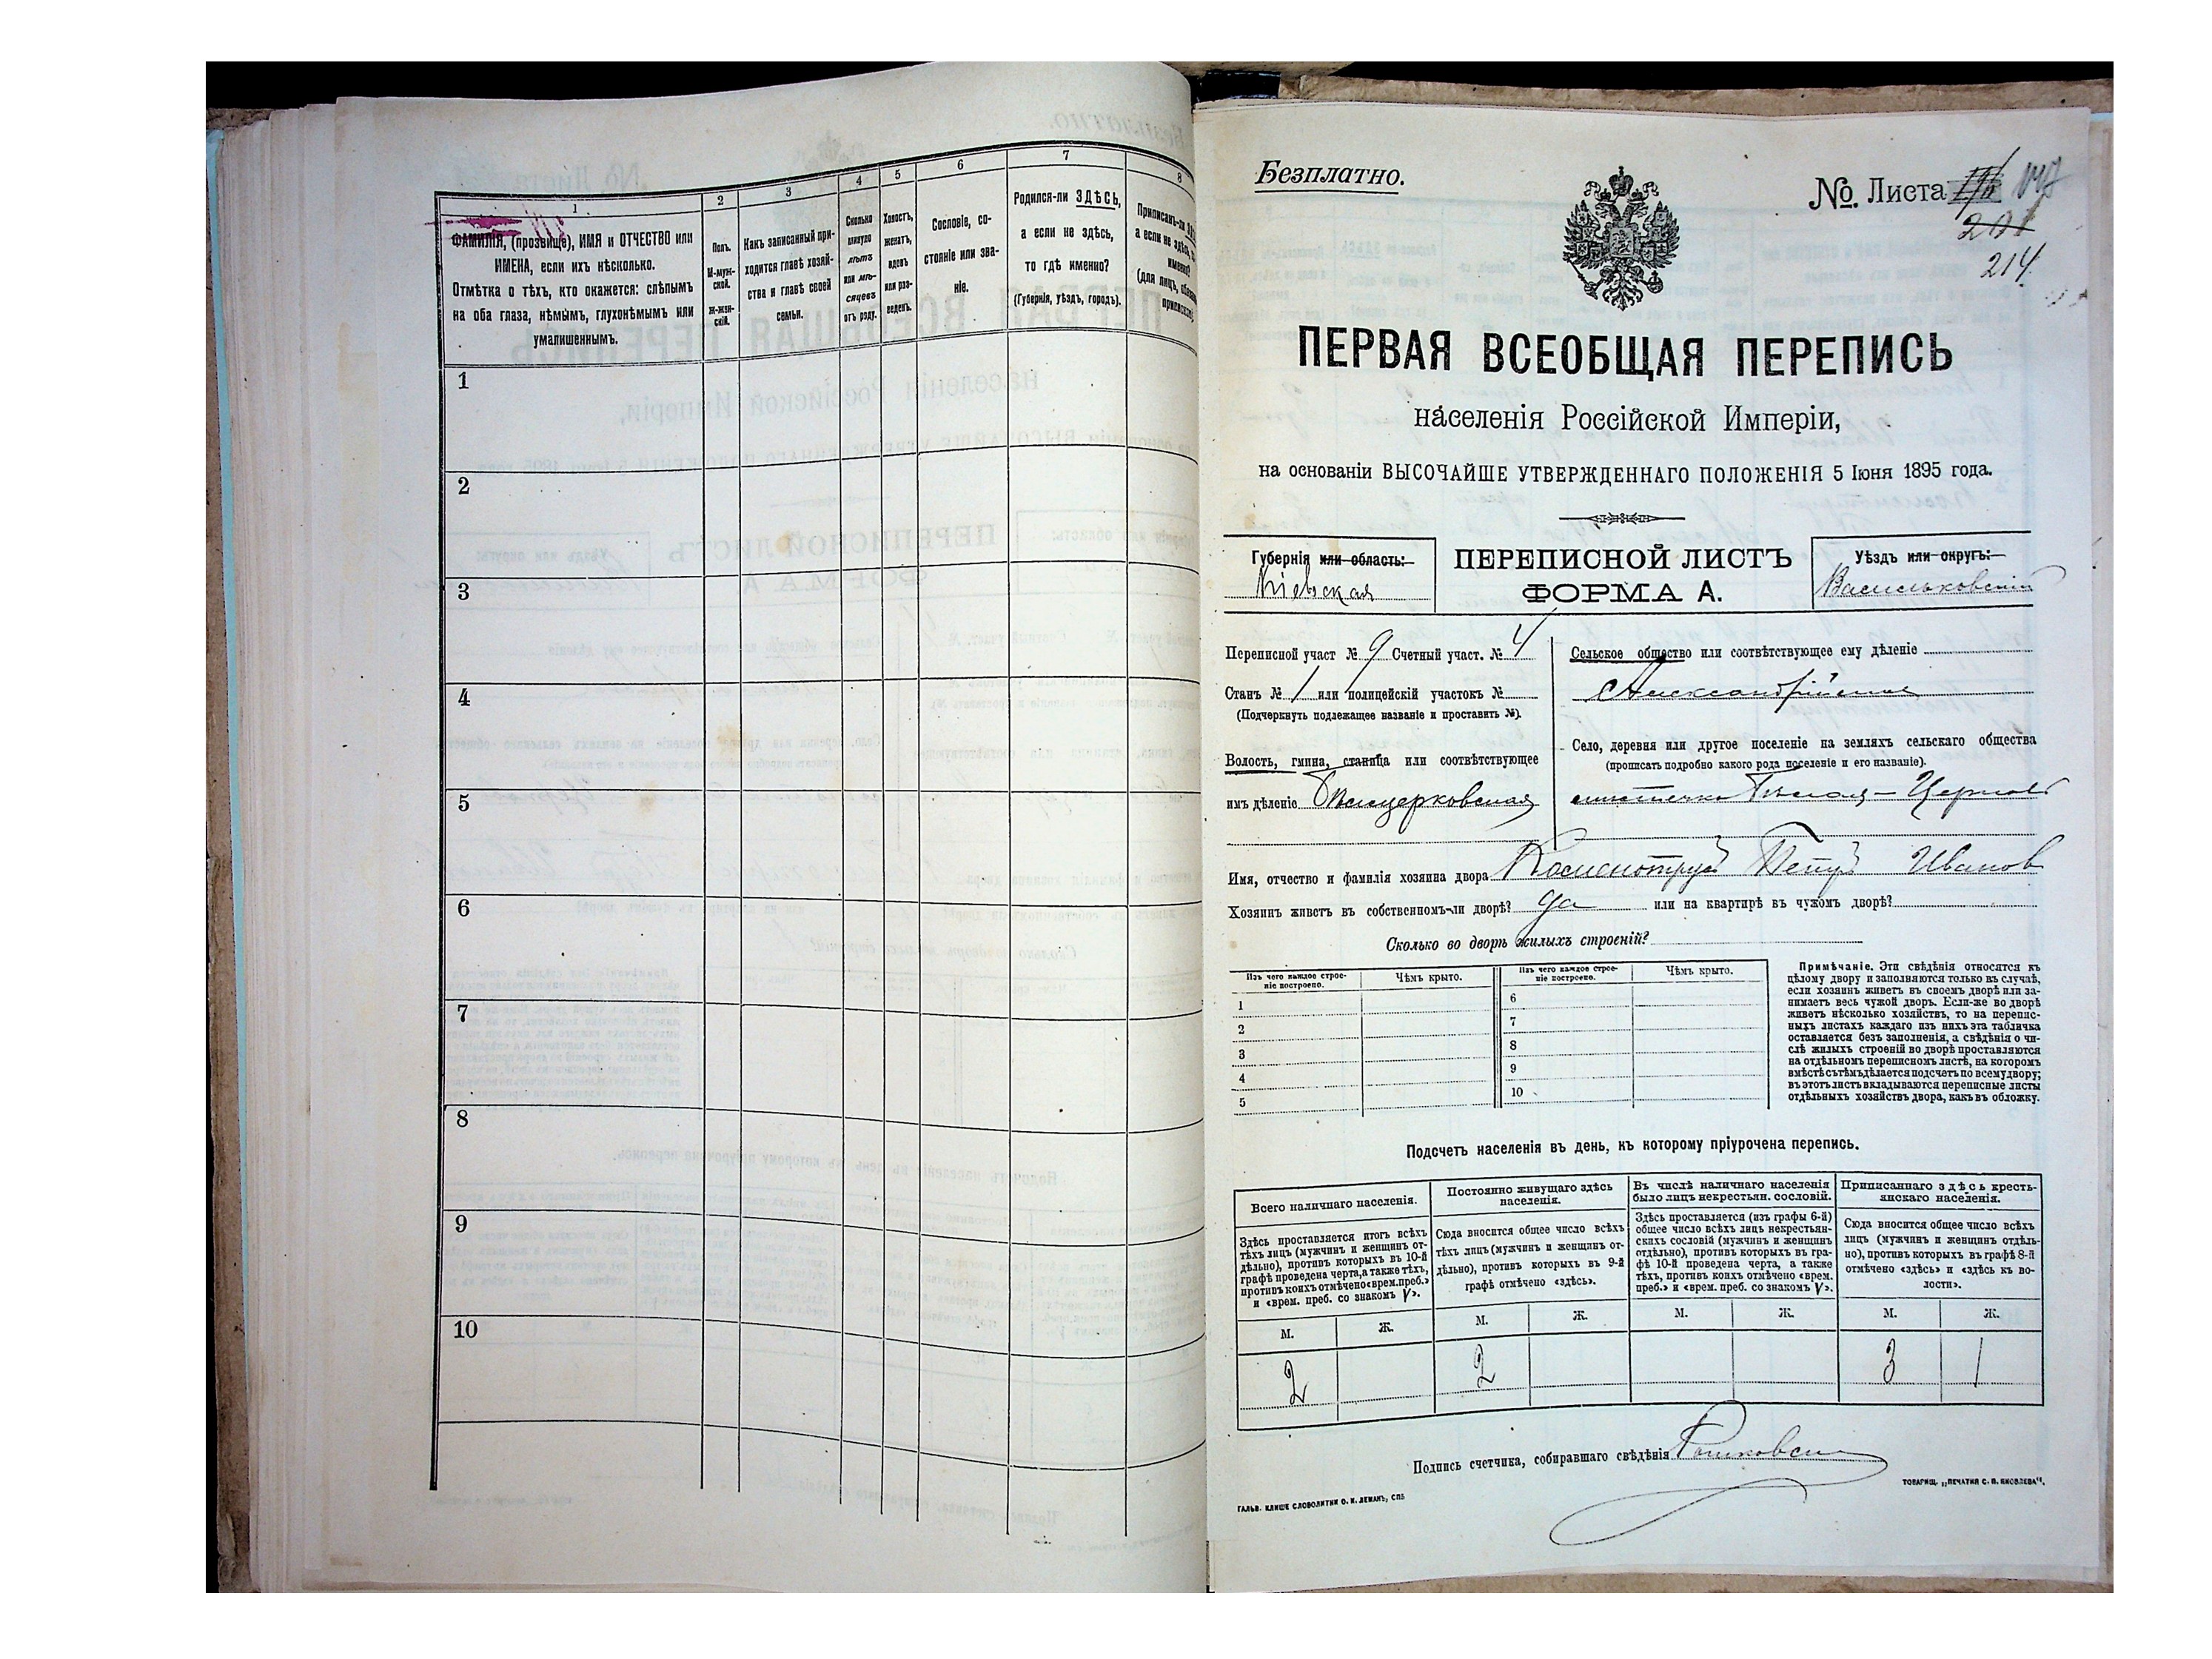 1
2
3
4
5
6
7
8
ФАМИЛІЯ, (прозвище), ИМЯ и ОТЧЕСТВО или
ИМЕНА, если ихъ нѣсколько.
Отмѣтка о тѣхъ, кто окажется: слѣпымъ
на оба глаза, нѣмымъ, глухонѣмымъ или
умалишеннымъ.
Полъ.
М-муж-
ской.
Ж-жен-
скій.
Какъ записанный при-
ходится главѣ хозяй-
ства и главѣ своей
семьи.
Сколько
минуло
лѣтъ
или мѣ-
сяцевъ
отъ роду.
Холостъ,
женатъ,
вдовъ
или раз-
веденъ.
Сословіе, со-
стояніе или зва-
ніе.
Родился-ли ЗДѢСЬ,
а если не здѣсь,
то гдѣ именно?
(Губернія, уѣздъ, городъ).
Приписанъ-ли
а если не здѣсь,
именно?
(для лицъ,
1
2
3
4
5
6
7
8
9
10
Безплатно.
№ Листа
201
214.
ПЕРВАЯ ВСЕОБЩАЯ ПЕРЕПИСЬ
населенія Россійской Имперіи,
на основаніи ВЫСОЧАЙШЕ УТВЕРЖДЕННАГО ПОЛОЖЕНІЯ 5 Іюня 1895 года.
Губернія или область:
Кіевская
ПЕРЕПИСНОЙ ЛИСТЪ
ФОРМА А.
Уѣздъ или округъ:
Васильковскій
Переписной участ № 9 Счетный участ. № 4
Станъ № 1 или полицейскій участокъ №
(Подчеркнуть подлежащее названіе и проставить №).
Волость, гмина, станица или соотвѣтствующее
имъ дѣленіе Бѣлоцерковская
Сельское общество или соотвѣтствующее ему дѣленіе
Александрійское
Село, деревня или другое поселеніе на земляхъ сельскаго общества
(прописать подробно какого рода поселеніе и его названіе).
мѣстечко Бѣлая-Церковь
Имя, отчество и фамилія хозяина двора Петръ Иванов
Хозяинъ живетъ въ собственномъ-ли дворѣ? да или на квартирѣ въ чужомъ дворѣ?
Сколько во дворѣ жилыхъ строеній?
Изъ чего каждое строе-
ніе построено.
Чѣмъ крыто.
Изъ чего каждое строе-
ніе построено.
Чѣмъ крыто.
1
2
3
4
5
6
7
8
9
10
Примѣчаніе. Эти свѣдѣнія относятся къ
цѣлому двору и заполняются только въ случаѣ,
если хозяинъ живетъ въ своемъ дворѣ или за-
нимаетъ весь чужой дворъ. Если-же во дворѣ
живетъ нѣсколько хозяйствъ, то на перепис-
ныхъ листахъ каждаго изъ нихъ эта табличка
оставляется безъ заполненія, а свѣдѣнія о чи-
слѣ жилыхъ строеній во дворѣ проставляются
на отдѣльномъ переписномъ листѣ, на которомъ
вмѣстѣ съ тѣмъ дѣлается подсчетъ по всему двору;
въ этотъ листъ вкладываются переписные листы
отдѣльныхъ хозяйствъ двора, какъ въ обложку.
Подсчетъ населенія въ день, къ которому пріурочена перепись.
Всего наличнаго населенія.
Здѣсь проставляется итогъ всѣхъ
тѣхъ лицъ (мужчин и женщинъ от-
дѣльно), против которыхъ въ 10-й
графѣ проведена черта, а также тѣхъ,
противъ коихъ отмѣчено «врем. преб.»
и «врем. преб. со знакомъ V».
Постоянно живущаго здѣсь
населенія.
Сюда вносится общее число всѣхъ
тѣхъ лицъ (мужчин и женщинъ от-
дѣльно), против которыхъ въ 9-й
графѣ отмѣчено «здѣсь».
Въ числѣ наличнаго населенія
было лицъ некрестьян. сословій.
Здѣсь проставляется (изъ графы 6-й)
общее число всѣхъ лицъ некрестьян-
скихъ сословій (мужчин и женщинъ
отдѣльно), против которыхъ въ гра-
фѣ 10-й проведена черта, а также
тѣхъ, против коихъ отмѣчено «врем.
преб.» и «врем. преб. со знакомъ V».
Приписаннаго здѣсь кресть-
янскаго населенія.
Сюда вносится общее число всѣхъ
лицъ (мужчин и женщинъ отдѣль-
но), против которыхъ въ графѣ 8-й
отмѣчено «здѣсь» и «здѣсь къ во-
лости».
М.
Ж.
М.
Ж.
М.
Ж.
М.
Ж.
2
2
3
1
Подпись счетчика, собиравшаго свѣдѣнія
ГАЛЬВ. КЛИШЕ СЛОВОЛИТНИ О. И. ЛЕМАНЪ, СПБ
ТОВАРИЩ. „ПЕЧАТНЯ С. П. ЯКОВЛЕВА".